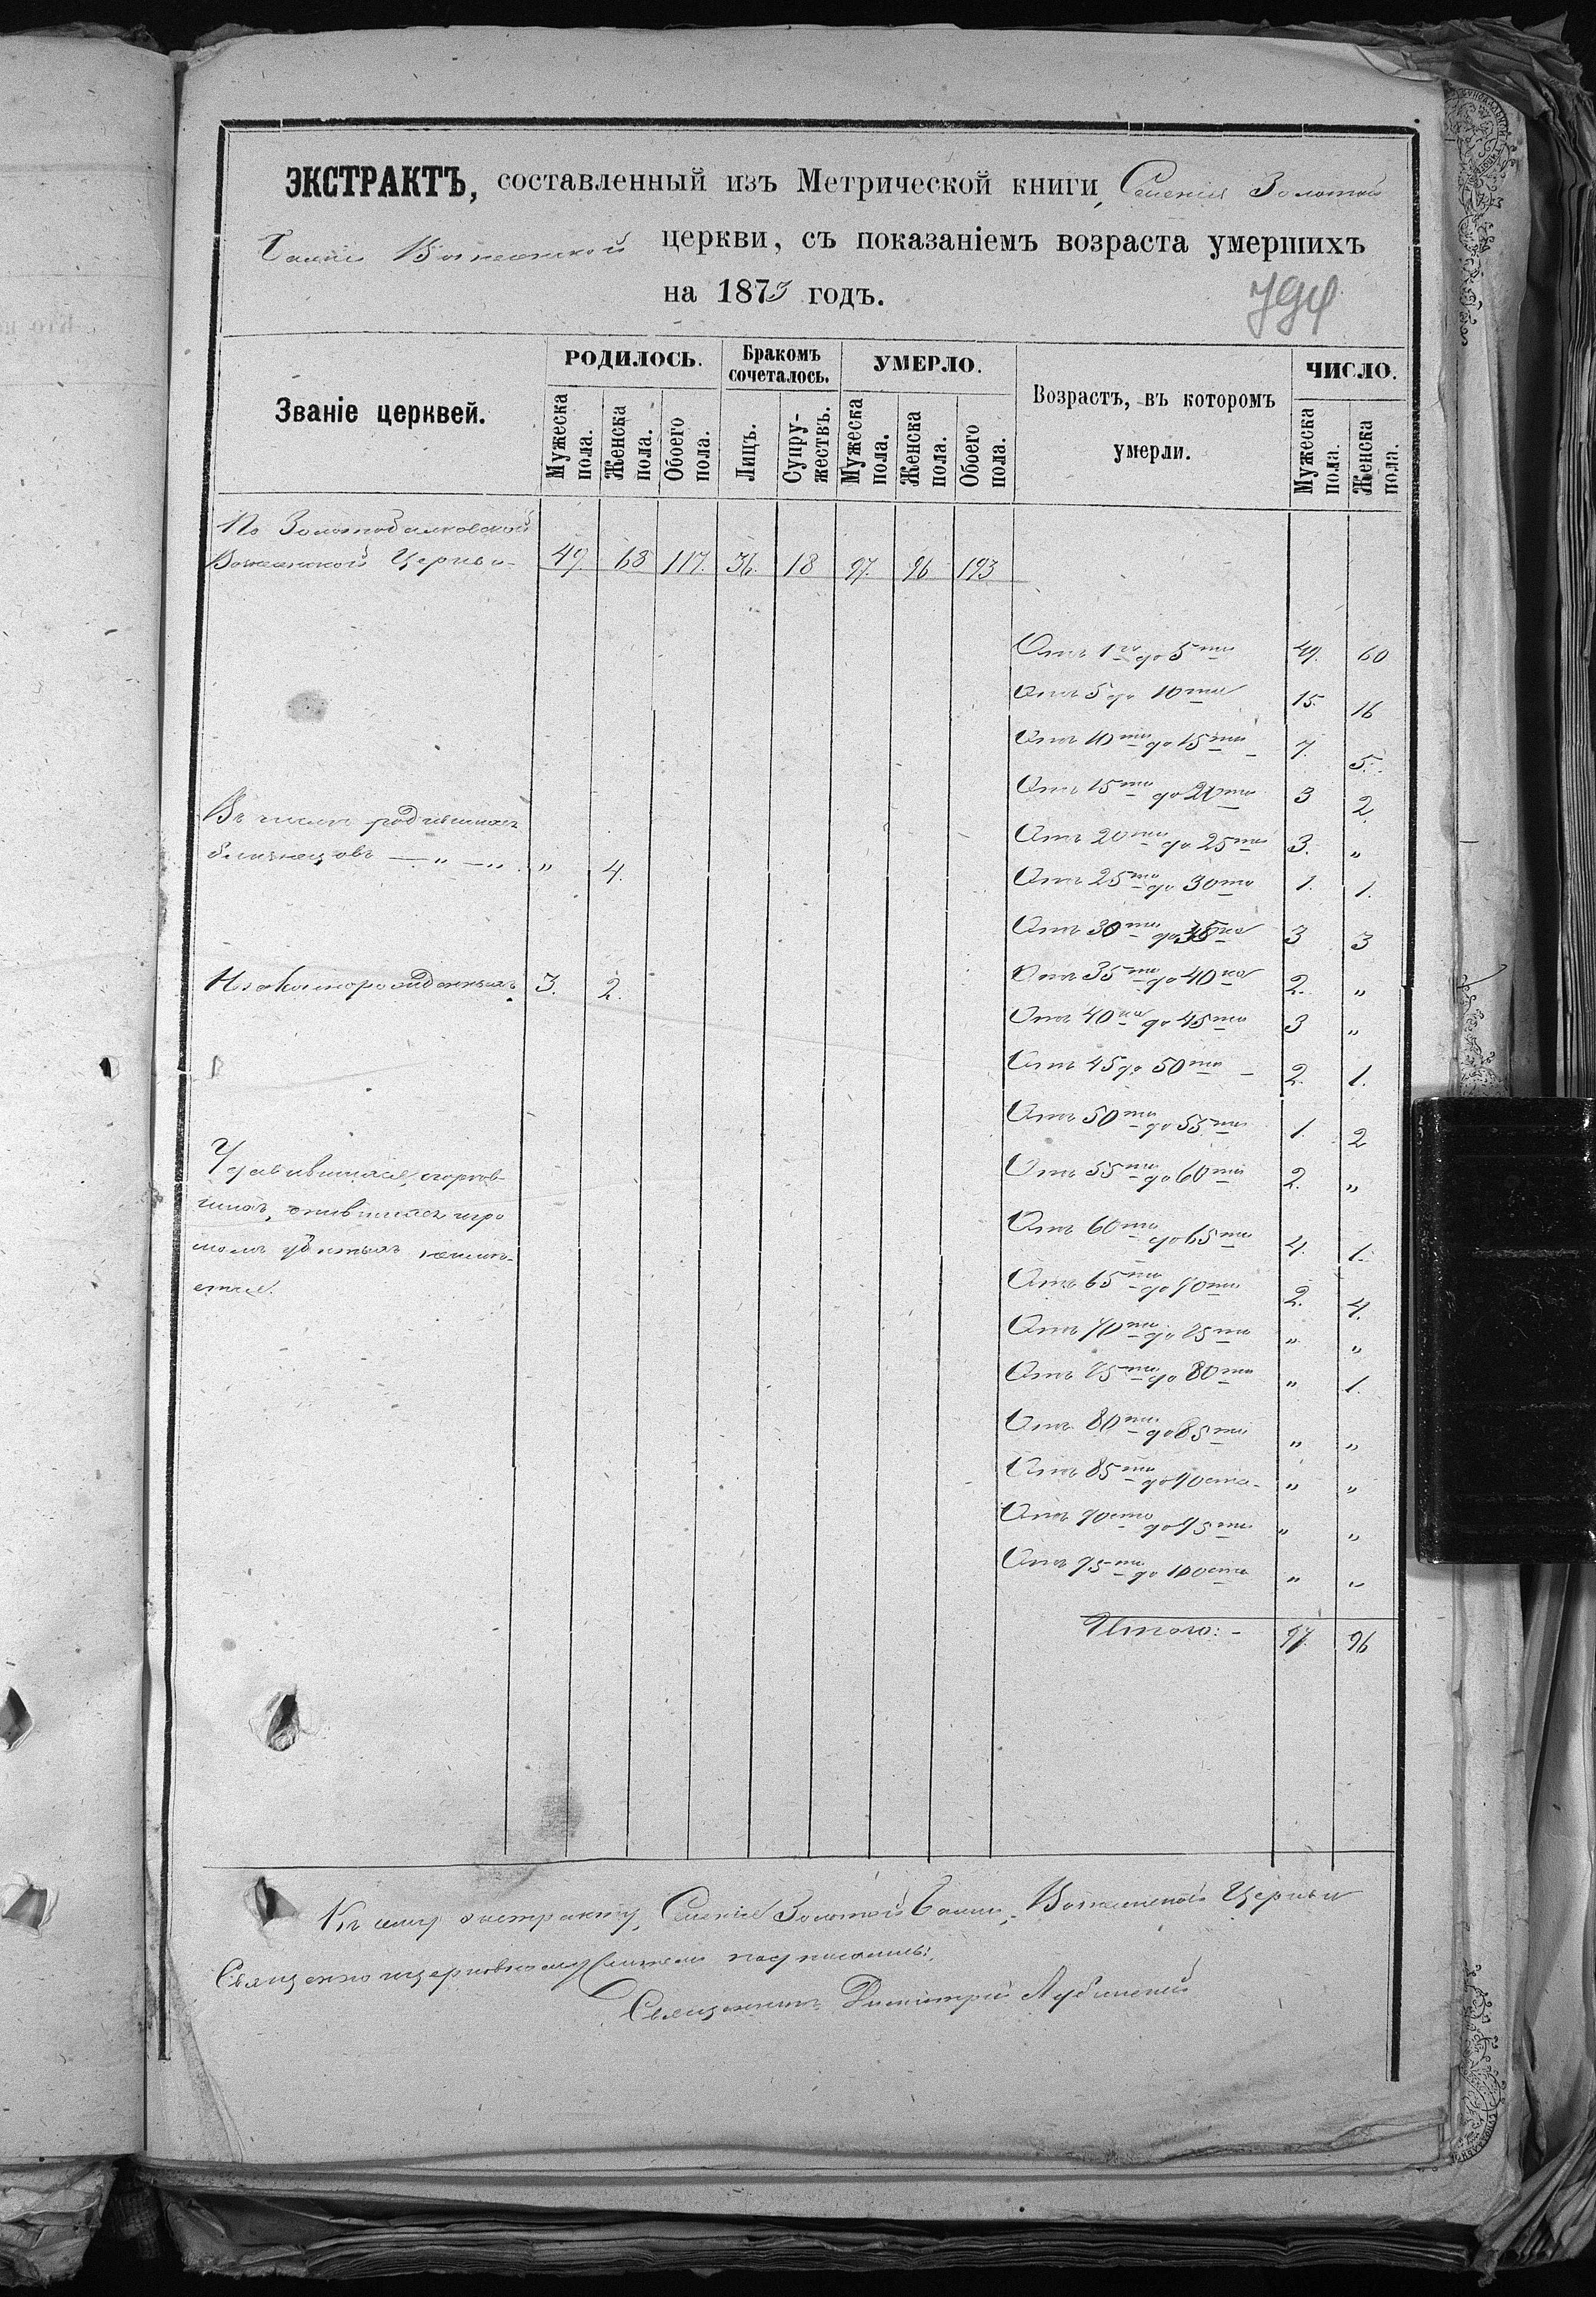 ЭКСТРАКТЪ, составленный изъ Метрической книги, Селенія Золотой
Балки Вознесенской церкви, съ показаніемъ возраста умершихъ
на 1873 годъ.
Званіе церквей.
РОДИЛОСЬ. Бракомъ сочеталось. УМЕРЛО. Возрастъ, въ которомъ умерли. ЧИСЛО.
Мужеска пола. Женска пола. Обоего пола. Лицъ. Супружествъ. Мужеска пола. Женска пола. Обоего пола. Мужеска пола. Женска пола.
По Золотобалковской
Вознесенской Церкви - 49. 68 117. 36. 18 97. 96 193
Отъ 1го до 5ти 49. 60
Отъ 5 до 10ти 15. 16
Отъ 10ти до 15ти - 7. 5.
Отъ 15ти до 20ти 3 2.
Въ числѣ родившихся
Отъ 20ти до 25ти 3. "
близнецовъ — " — " " 4.
Отъ 25ти до 30ти 1. 1.
Отъ 30ти до 35ти 3 3
Незаконорожденныхъ 3. 2.
Отъ 35ти до 40ка 2. "
Отъ 40ка до 45ти 3 "
Отъ 45 до 50ти - 2. 1.
Отъ 50ти до 55ти 1. 2
Отъ 55ти до 60ти 2. "
Отъ 60ти до 65ти 4. 1.
Отъ 65ти до 70ти 2. 4.
Отъ 70ти до 75ти " "
Отъ 75ти до 80ти " 1.
Отъ 80ти до 85ти " "
Отъ 85ти до 90ста - " "
Отъ 90ста до 95ти " "
Отъ 95ти до 100ста " "
Итого: - 97. 96
Къ сему экстракту, Селенія Золотой Балки, Вознесенской Церкви
Священноцерковнослужители подписались:
Священникъ Димитрій